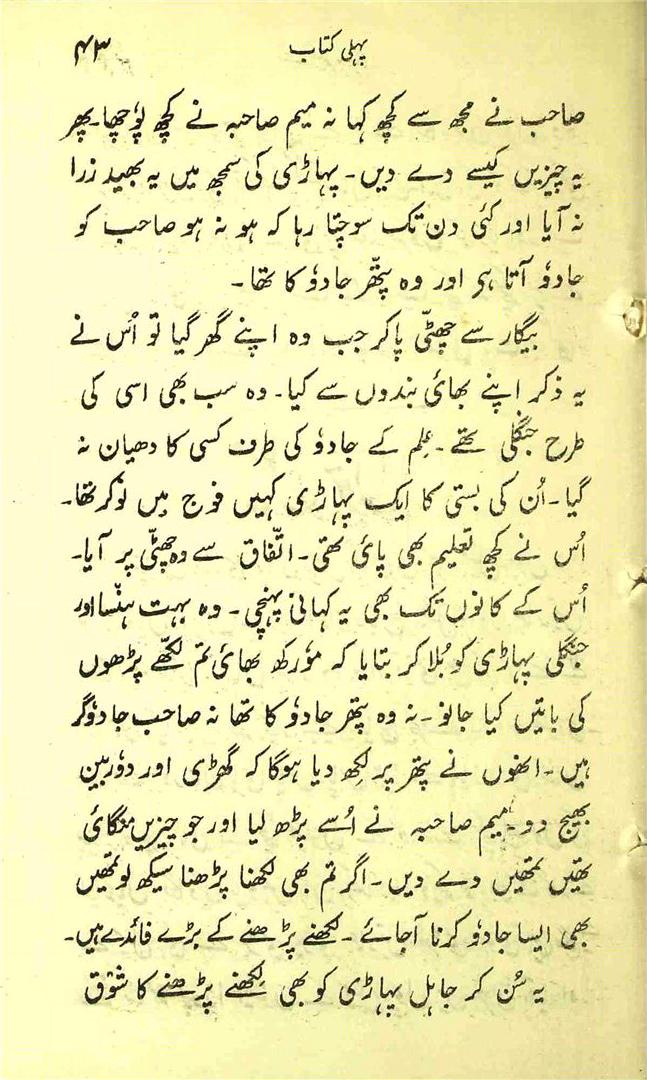 پہلی کتاب ۴۳
صاحب نے مجھ سے کچھ کہا نہ میم صاحبہ نے کچھ پوٗچھا۔ پھر
یہ چیزیں کیسے دے دیں۔ پہاڑی کی سمجھ میں یہ بھید زرا
نہ آیا اور کئی دن تک سوچتا رہا کہ ہو نہ ہو صاحب کو
جادوٗ آتا ہی اور وہ پتّھر جادوٗ کا تھا۔
بیگار سے چھٹّی پاکر جب وہ اپنے گھر گیا تو اُس نے
یہ ذکر اپنے بھائ بندوں سے کیا۔ وہ سب بھی اسی کی
طرح جنگلی تھے۔ عِلم کے جادوٗ کی طرف کسی کا دھیان نہ
گیا۔ اُن کی بستی کا ایک پہاڑی کہیں فوج میں نوکر تھا۔
اُس نے کچھ تعلیم بھی پائ تھی۔ اتّفاق سے وہ چھٹّی پر آیا۔
اُس کے کانوں تک بھی یہ کہانی پہنچی۔ وہ بہت ہنسا اور
جنگلی پہاڑی کو بُلا کر بتایا کہ موٗرکھ بھائ تم لکّھے پڑھوں
کی باتیں کیا جانو۔ نہ وہ پتّھر جادوٗ کا تھا نہ صاحب جادوٗگر
ہیں۔ انھوں نے پتّھر پر لِکھ دیا ہوگا کہ گھڑی اور دوٗربین
بھیج دو۔ میم صاحبہ نے اُسے پڑھ لیا اور جو چیزیں منگائ
تھیں تمھیں دے دیں۔ اگر تم بھی لکھنا پڑھنا سیکھ لو تمھیں
بھی ایسا جادوٗ کرنا آجائے۔ لکھنے پڑھنے کے بڑے فائدے ہیں۔
یہ سُن کر جاہل پہاڑی کو بھی لِکھنے پڑھنے کا شوٗق